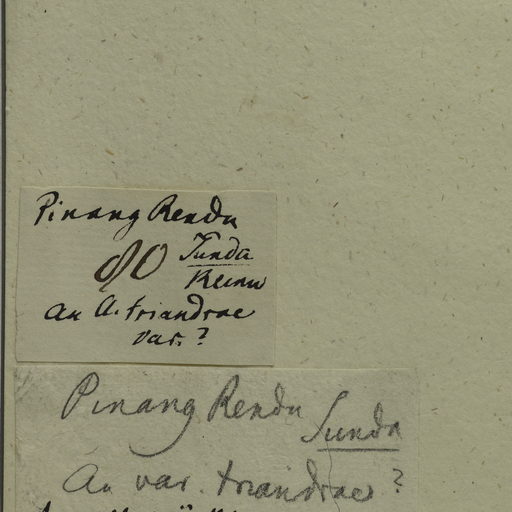 Pinang Rendu
80 Sunda
an A. triandrae
var. ?
Pinang Rendu
Sunda
An var. triandrae ?